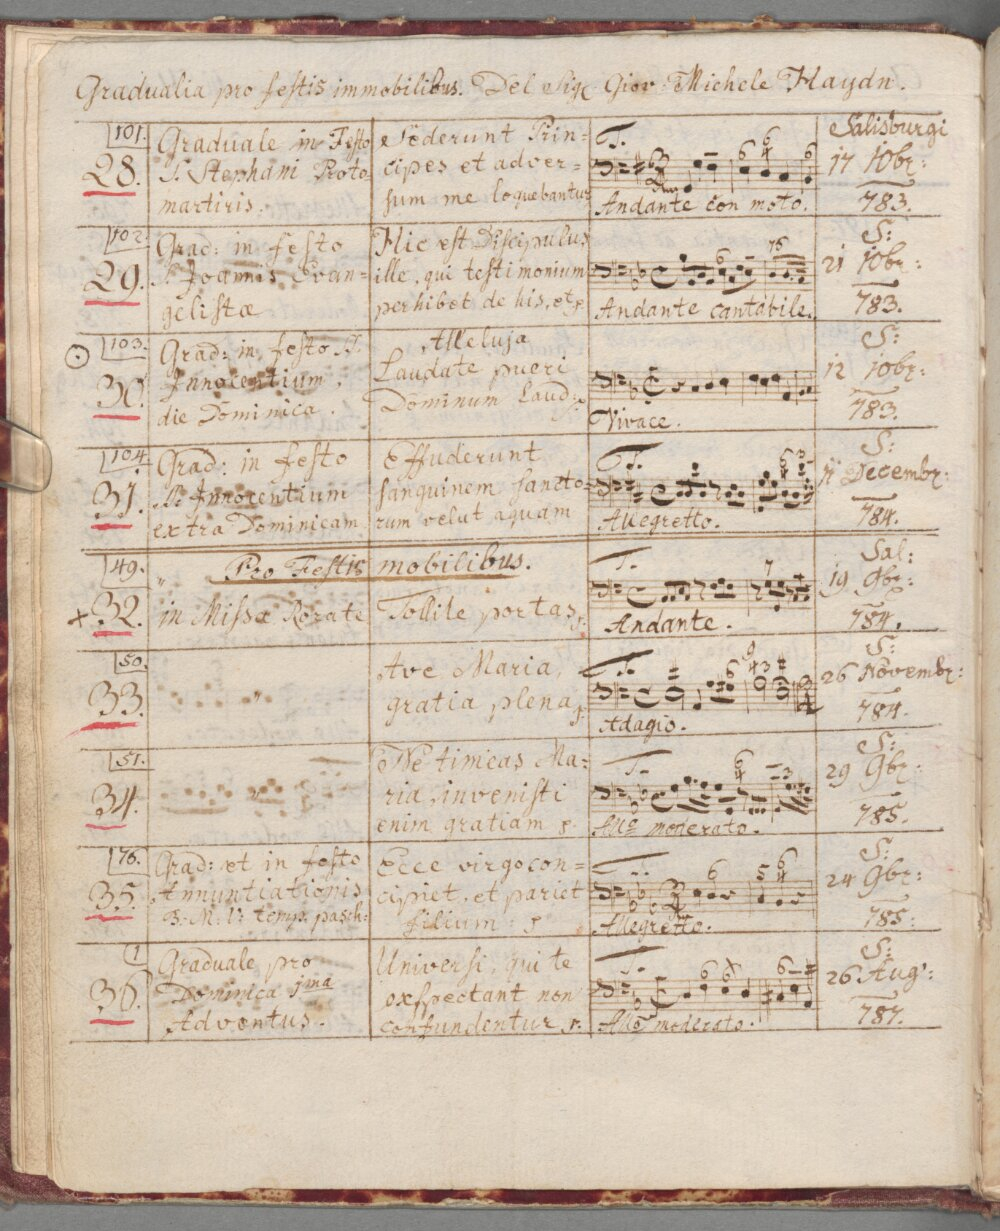 Gradualia pro festis immobilibus. Del Sig. Giov: Michele Haydn.
101.
28.
Graduale in Festo
S. Stephani Proto-
martiris.
Sederunt Prin-
cipes et adver-
sum me loquebantur
T.
6 6 4 6
Andante con moto.
Salisburgi
17 10br:
783.
102.
29.
Grad: in festo
S. Joannis Evan-
gelistæ
Hic est Discipulus
ille, qui testimonium
perhibet de his, et
6 76
Andante cantabile.
S:
21 10br:
783.
103.
30.
Grad: in festo S.
Innocentium.
die Dominica.
Alleluja
Laudate pueri
Dominum Laud:
Vivace.
S:
12 10br:
783.
104.
31.
Grad: in festo
S. Innocentium
extra Dominicam
Effuderunt
sanguinem sancto-
rum velut aquam
T.
Allegretto.
S:
Decembr:
784.
49.
Pro Festis mobilibus.
x 32.
in Missa Rorate
Tollite portas
T.
7
Andante.
Sal:
19 9br:
784.
50.
33.
"
Ave Maria,
gratia plena
T.
6 9 4 3
Adagio.
S:
26 Novembr:
784.
51.
34.
Ne timeas Ma-
ria, invenisti
enim gratiam
T.
6 4 3
Allo moderato.
S:
29 9br:
785.
76.
35.
Grad: et in festo
Annuntiationis
B. M. V. temp. pasch:
Ecce virgo con-
cipiet, et pariet
filium
T.
6 5 6 4
Allegretto.
S:
24 9br:
785.
1
36.
Graduale pro
Dominica 1ma
Adventus.
Universi, qui te
exspectant non
confundentur
T.
6
Allo moderato.
S:
26 Aug:
787.